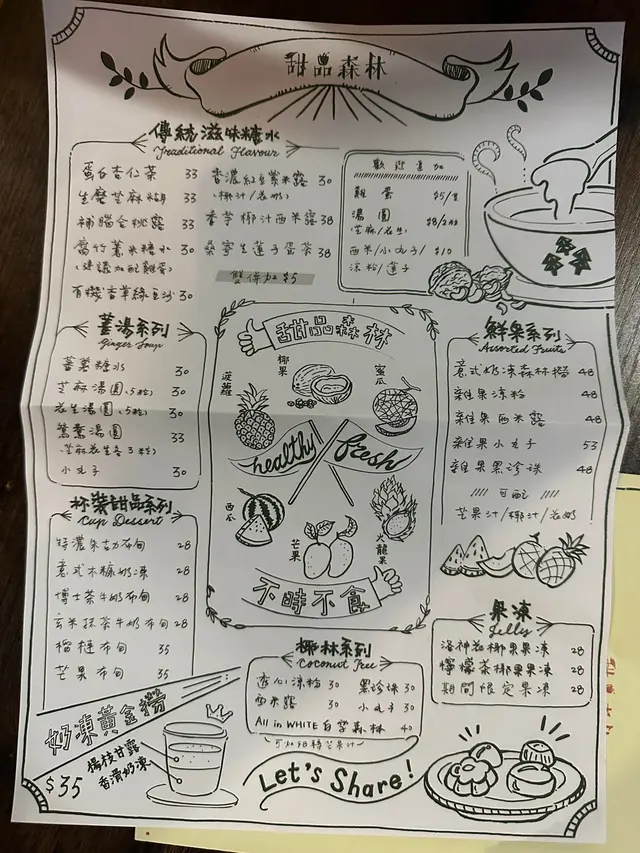 甜品森林
傳統滋味糖水
Traditional Flavour
蛋白杏仁茶 33
生磨芝麻糊 33
補腦合桃露 33
腐竹薏米糖水 30
(建議加配雞蛋)
有機香草綠豆沙 30
香濃紅豆紫米露 30
(椰汁/花奶)
香芋椰汁西米露 38
桑寄生蓮子蛋茶 38
雙倍加 $5
歡迎追加
雞蛋 $5/隻
湯圓 $8/2粒
(芝麻/花生)
西米/小丸子/ $10
涼粉/蓮子
薑湯系列
Ginger Soup
蕃薯糖水 30
芝麻湯圓(5粒) 30
花生湯圓(5粒) 30
鴛鴦湯圓 33
(芝麻花生各3粒)
小丸子 30
甜品森林
菠蘿
椰果
蜜瓜
healthy fresh
西瓜
芒果
火龍果
不時不食
鮮果系列
Assorted Fruits
意式奶凍森林撈 48
雜果涼粉 48
雜果西米露 48
雜果小丸子 53
雜果黑珍珠 48
可配
芒果汁/椰汁/花奶
杯裝甜品系列
Cup Dessert
特濃朱古力布甸 28
意式木糠奶凍 28
博士茶牛奶布甸 28
玄米抹茶牛奶布甸 28
榴槤布甸 35
芒果布甸 35
椰林系列
Coconut Tree
透心涼粉 30
黑珍珠 30
西米露 30
小丸子 30
All in WHITE 白雪森林 40
果凍
Jelly
洛神花椰果果凍 28
檸檬茶椰果果凍 28
期間限定果凍 28
奶凍黃金撈
楊枝甘露
香滑奶凍
$35
Let's Share!